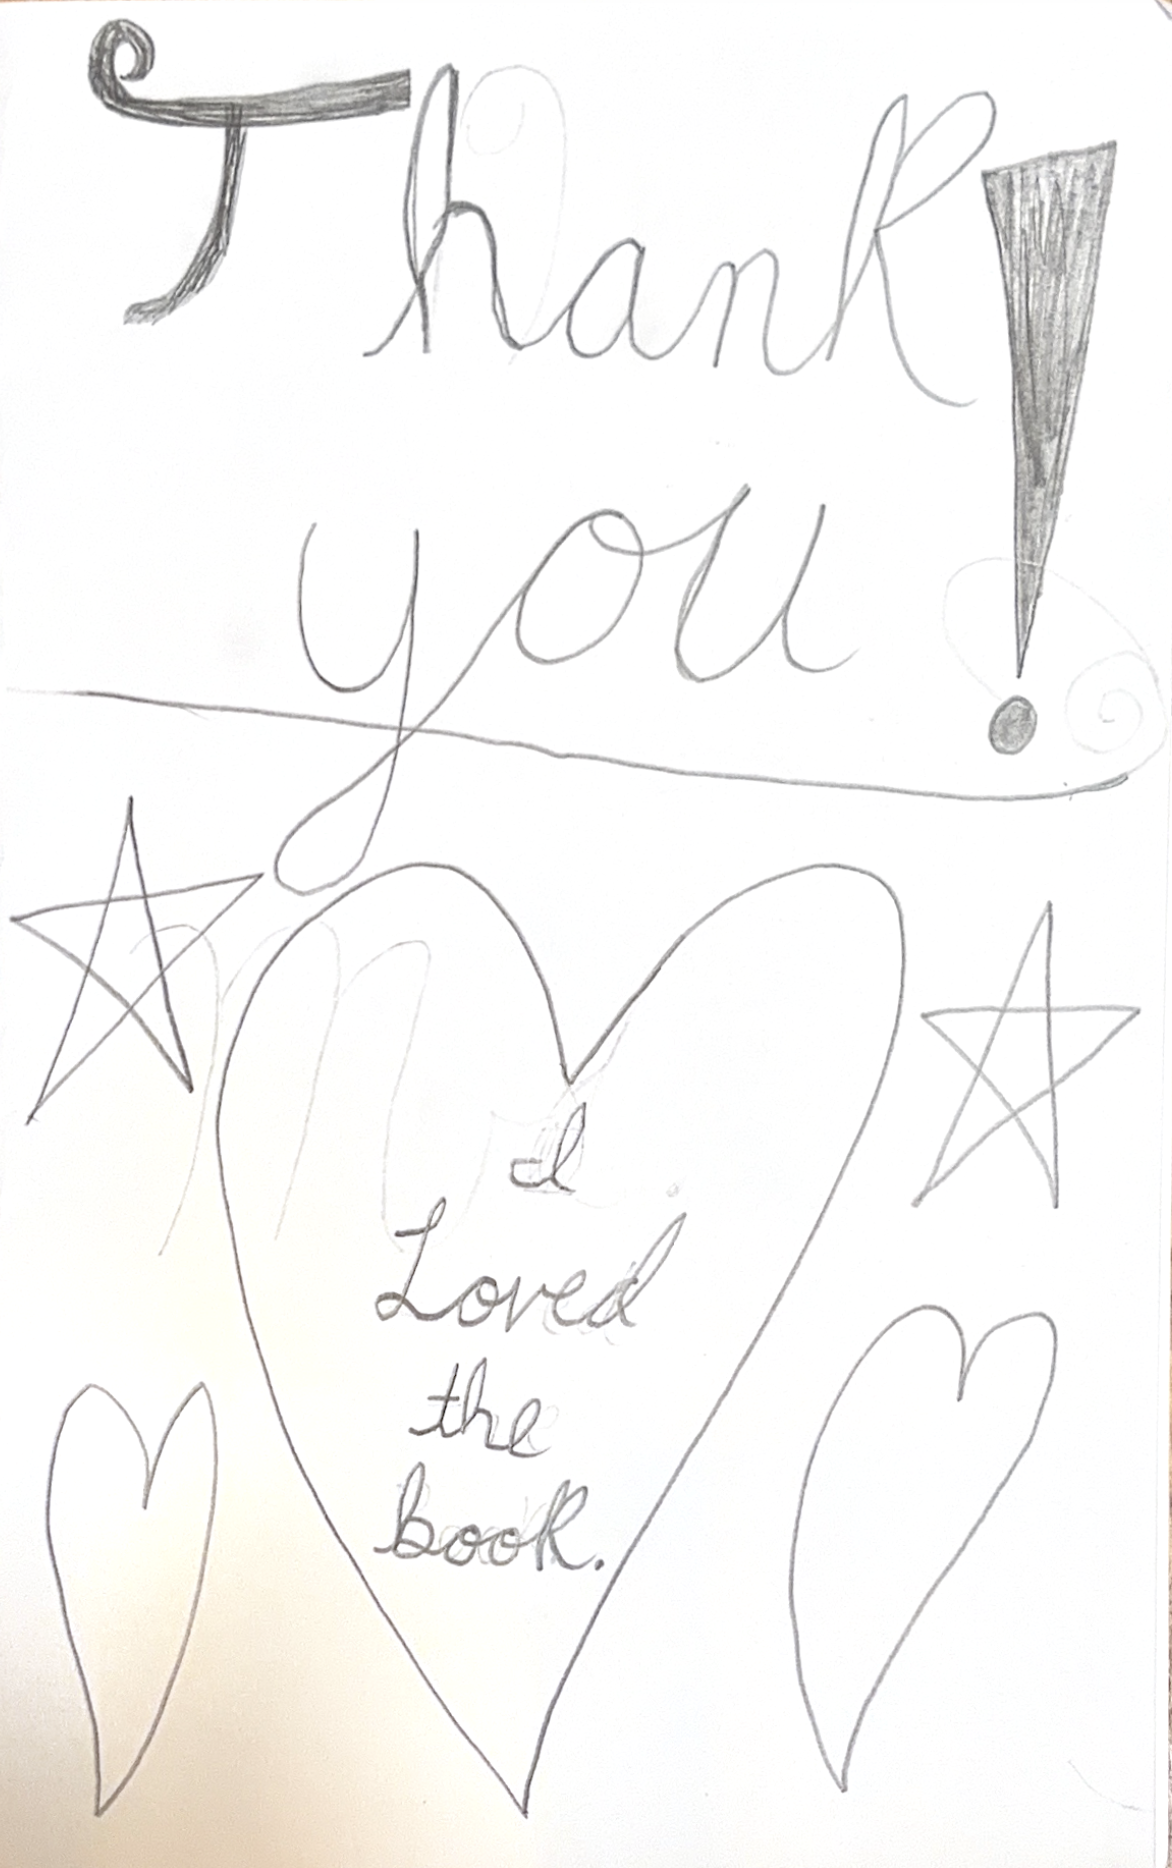 Thank
you!
I
Loved
the
book.